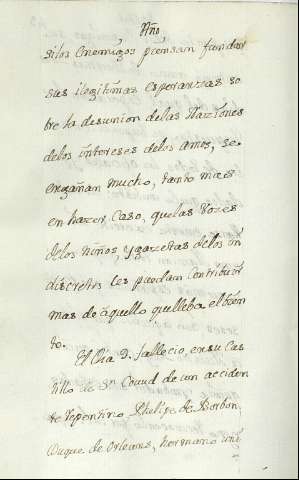 Año
silos Enemigos piensan fundar
sus ilegitimas esperanzas so
bre la desunion delas Naziones
delos intereses delos amos, se
engañan mucho, tanto mas
en hazer caso, quelas vozes
delos niños, y gazetas delos in
discretos les puedan Contribuir
mas de aquello quelleba el bien
to.
El Dia 9. fallecio, en su Cas
tillo de Sn Cloud de un acciden
te repentino Phelipe de Borbon,
Duque de Orleans, hermano uni